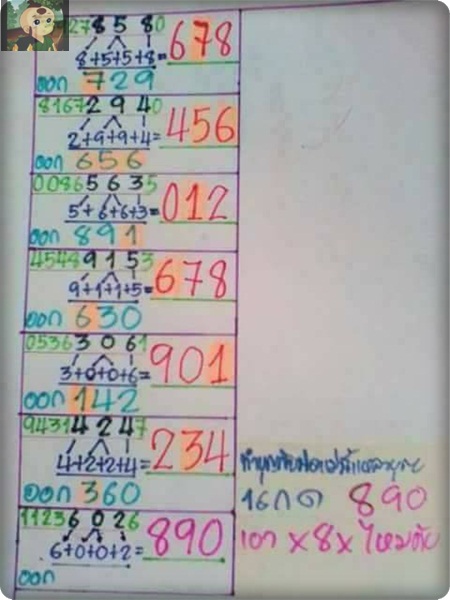 278580
8+5+5+8=678
ออก 729
81672940
2+9+9+4=456
ออก 656
00865635
5+6+6+3=012
ออก 891
45489153
9+1+1+5=678
ออก 630
05363061
3+0+0+6=901
ออก 142
94314247
4+2+2+4=234
ออก 360
11236026
6+0+0+2=890
ออก
890
เอา x8x ไหมคับ